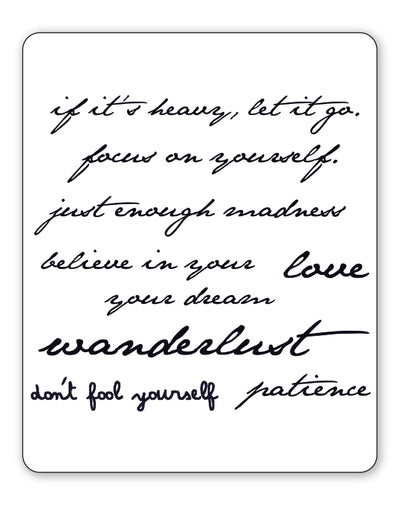 if it's heavy, let it go.
focus on yourself.
just enough madness
believe in your
love
your dream
wanderlust
don't fool yourself
patience